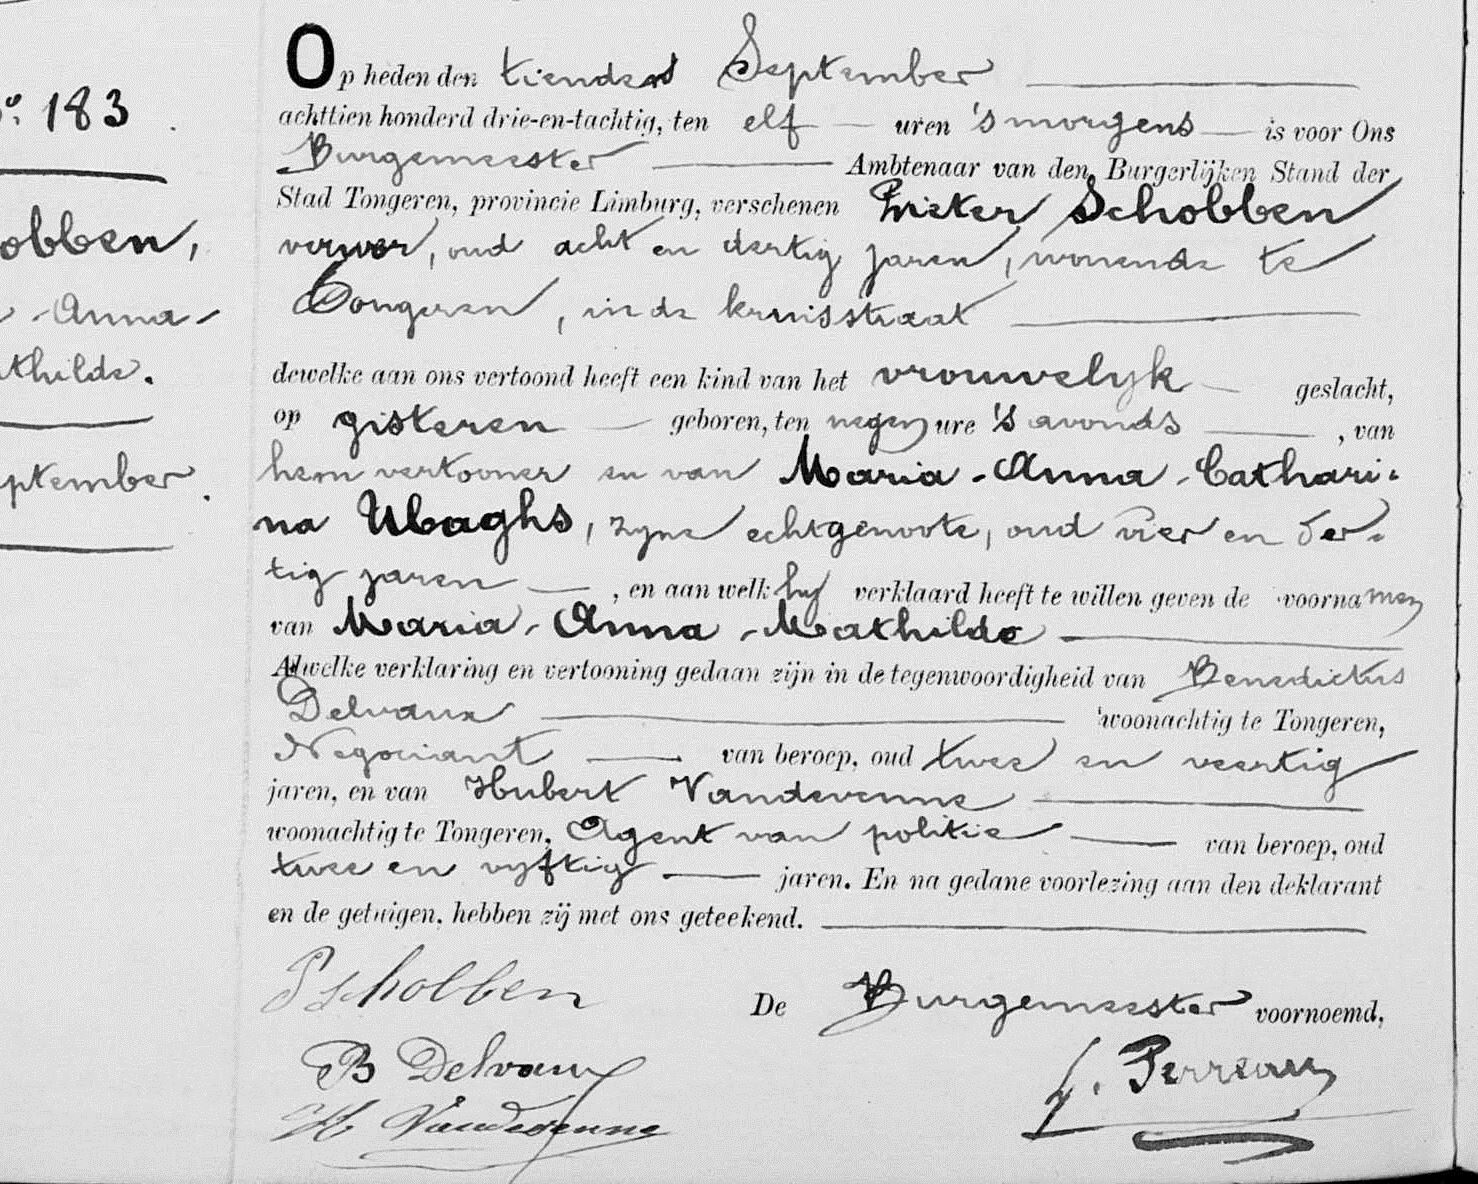 Nº. 183
obben,
Anna-
thilde.
eptember.
Op heden den tienden September
achttien honderd drie-en-tachtig, ten elf uren 's morgens is voor Ons
Burgemeester Ambtenaar van den Burgerlijken Stand der
Stad Tongeren, provincie Limburg, verschenen Pieter Schobben
verwer, oud acht en dertig jaren, wonende te
Tongeren, in de kruisstraat
dewelke aan ons vertoond heeft een kind van het vrouwelyk geslacht,
op gisteren geboren, ten negen ure 's avonds , van
hem vertooner en van Maria-Anna-Cathari-
na Ubaghs, zyne echtgenoote, oud vier en der-
tig jaren , en aan welk hy verklaard heeft te willen geven de voornamen
van Maria-Anna-Mathilde
Alwelke verklaring en vertooning gedaan zijn in de tegenwoordigheid van Benedictus
Delvaux woonachtig te Tongeren,
Negociant van beroep, oud twee en veertig
jaren, en van Hubert Vandevenne
woonachtig te Tongeren, Agent van politie van beroep, oud
twee en vyftig jaren. En na gedane voorlezing aan den deklarant
en de getuigen, hebben zij met ons geteekend.
P Schobben
De Burgemeester voornoemd,
B Delvaux
H Vandevenne